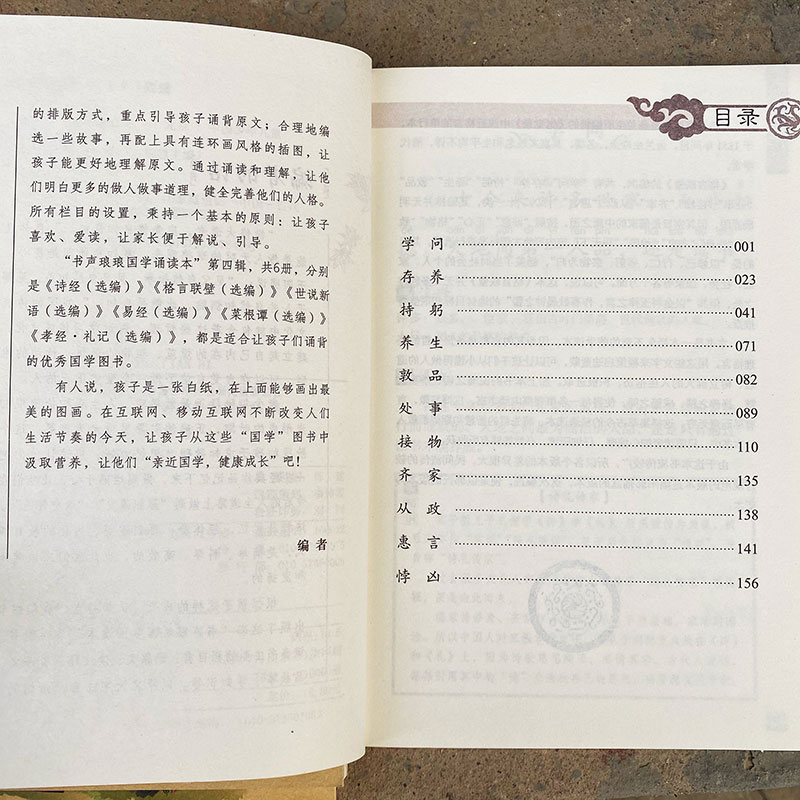 的排版方式，重点引导孩子诵背原文；合理地编
选一些故事，再配上具有连环画风格的插图，让
孩子能更好地理解原文。通过诵读和理解，让他
们明白更多的做人做事道理，健全完善他们的人格。
所有栏目的设置，秉持一个基本的原则：让孩子
喜欢、爱读，让家长便于解说、引导。
“书声琅琅国学诵读本”第四辑，共6册，分别
是《诗经（选编）》《格言联璧（选编）》《世说新
语（选编）》《易经（选编）》《菜根谭（选编）》
《孝经·礼记（选编）》，都是适合让孩子们诵背
的优秀国学图书。
有人说，孩子是一张白纸，在上面能够画出最
美的图画。在互联网、移动互联网不断改变人们
生活节奏的今天，让孩子从这些“国学”图书中
汲取营养，让他们“亲近国学，健康成长”吧！
编者
目录
学问 001
存养 023
持躬 041
养生 071
敦品 082
处事 089
接物 110
齐家 135
从政 138
惠言 141
悖凶 156